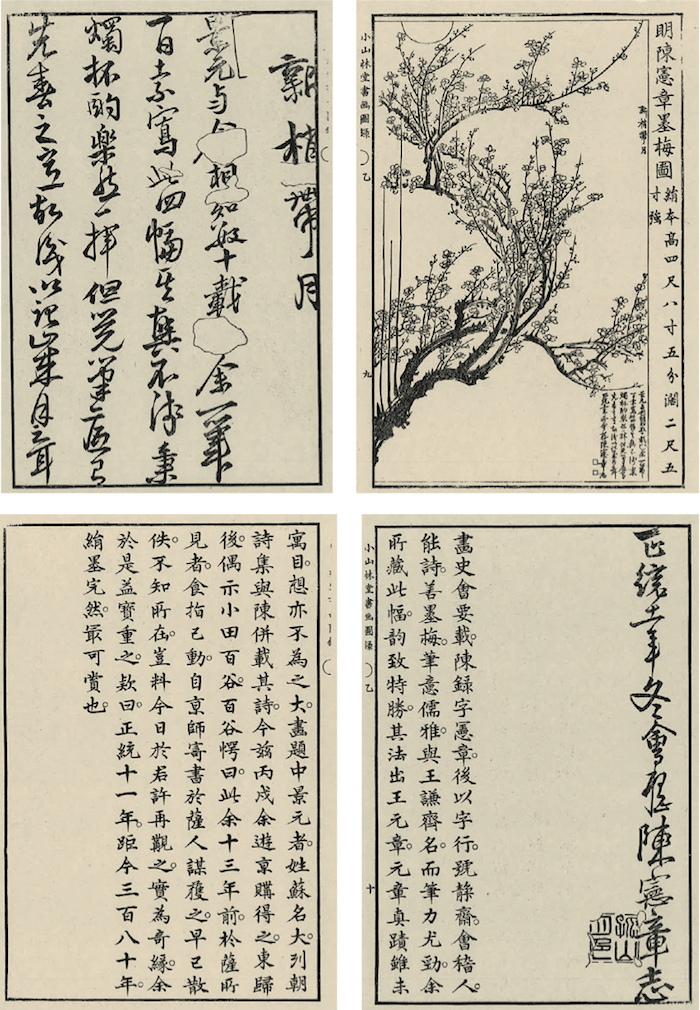 明陳憲章墨梅圖 絹本高四尺八寸五分濶二尺五寸強
新梢帶月
小山林堂書画圖録 乙 九
新梢帶月
景元与 相知 十載 余一筆
百素寫此四幅其興不淺秉
燭杯酌樂然一揮但覺筆底已
先春之意故識以記歲月云耳
正統十一年冬會稽陳憲章志
畫史會要載陳録字憲章後以字行號静齋。會稽人。
能詩。善墨梅。筆意儒雅。與王謙齊名。而筆力尤勁。余
所藏此幅。韵致特勝。其法出王元章。元章真蹟雖未
小山林堂書画圖録 乙 十
寓目。想亦不為之大。畫題中景元者。姓蘇名大。列朝
詩集與陳併載其詩。今茲丙戌余遊京購得之。東歸
後。偶示小田百谷。百谷愕曰。此余十三年前。於薩所
見者。食指已動。自京師寄書於薩人謀獲之。早已散
佚。不知所在。豈料今日於君許再觀之。實為奇縁。余
於是益寶重之。款曰。正統十一年。距今三百八十年。
絹墨完然。最可賞也。